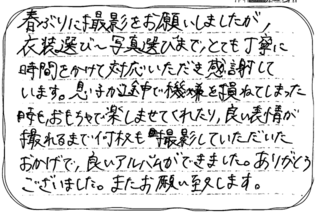 春ぶりに撮影をお願いしましたが、
衣装選び〜写真選びまで、とても丁寧に
時間をかけて対応いただき感謝して
います。息子が途中で機嫌を損ねてしまった
時も、おもちゃで楽しませてくれたり、良い表情が
撮れるまで何枚も撮影していただいた
おかげで、良いアルバムができました。ありがとう
ございました。またお願い致します。